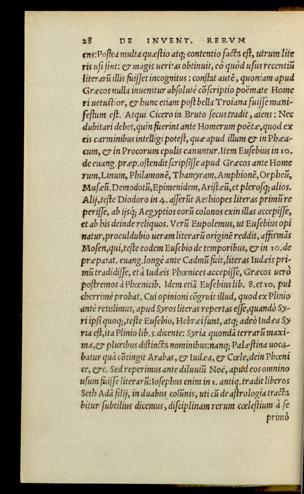 28 DE INVENT. RERVM
ens: Postea multa quæstio atq; contentio facta est, utrum lite
ris usi sint: & magis ueritas obtinuit, eò quòd usus recentiũ
literarũ illis fuisset incognitus: constat autē, quoniam apud
Græcos nulla inuenitur absolutè cõscriptio poëmate Home
ri uetustior, & hunc etiam post bella Troiana fuisse mani-
festum est. Atqui Cicero in Bruto secus tradit, aiens: Nec
dubitari debet, quin fuerint ante Homerum poëtæ, quod ex
eis carminibus intelligi potest, quæ apud illum & in Phæa-
cum, & in Procorum epulis canuntur. Item Eusebius in 10.
de euang. præp. ostendit scripsisse apud Græcos ante Home
rum, Linum, Philamonē, Thamyram, Amphionē, Orpheũ,
Musæũ, Demodotũ, Epimenidem, Aristæũ, et plerosq; alios.
Alij, teste Diodoro in 4. asserũt Aethiopes literas primũ re
perisse, ab ijsq; Aegyptios eorũ colonos exin illas accepisse,
et ab his deinde reliquos. Verũ Eupolemus, ut Eusebius opi
natur, proculdubio ueram literarũ originē reddit, affirmãs
Mosen, qui, teste eodem Eusebio de temporibus, & in 10. de
præparat. euang. longè ante Cadmũ fuit, literas Iudæis pri-
mũ tradidisse, et à Iudæis Phœnices accepisse, Græcos uerò
postremos à Phœnicib. Idem etiã Eusebius lib. 8. et 10. pul
cherrimè probat. Cui opinioni cõgruit illud, quod ex Plinio
antè retulimus, apud Syros literas repertas esse, quandò Sy-
ri ipsi quoq;, teste Eusebio, Hebræi sunt, atq; adeò Iudæa Sy
ria est, ita Plinio lib. 5. dicente: Syria quondã terrarũ maxi-
ma, & pluribus distincta nominibus: nanq; Palæstina uoca-
batur quà cõtingit Arabas, & Iudæa, & Cœle, dein Phœni
ce, &c. Sed reperimus ante diluuiũ Noë, apud eos omnino
usum fuisse literarũ: Iosephus enim in 1. antiq. tradit liberos
Seth Adã filij, in duabus colũnis, uti cũ de astrologia tracta
bitur subtilius dicemus, disciplinam rerum cœlestium à se
primò